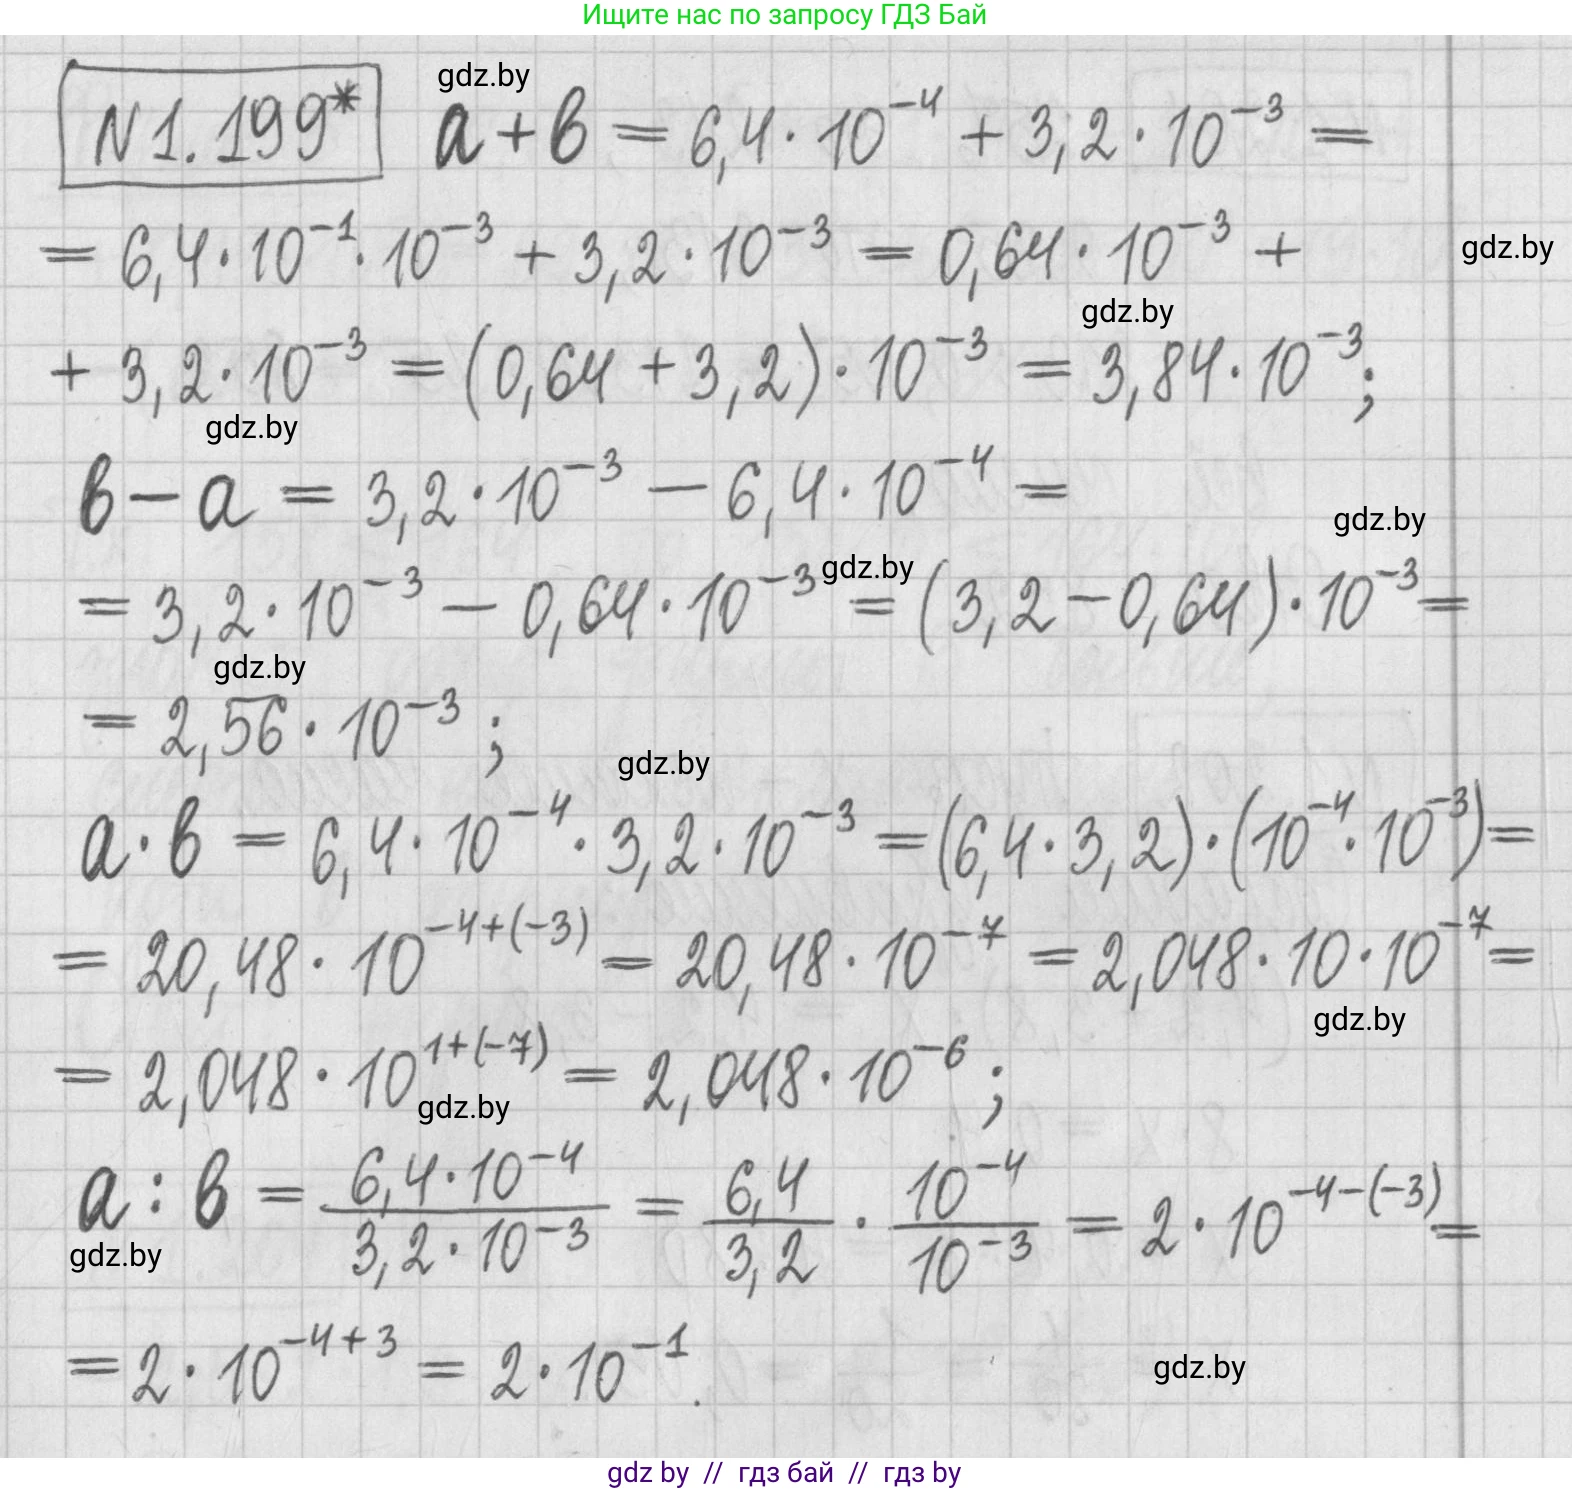 Ищите нас по запросу ГДЗ Бай
N1.199* a+b = 6,4·10⁻⁴ + 3,2·10⁻³ =
gdz.by
= 6,4·10⁻¹·10⁻³ + 3,2·10⁻³ = 0,64·10⁻³ +
gdz.by
gdz.by
+ 3,2·10⁻³ = (0,64 + 3,2)·10⁻³ = 3,84·10⁻³;
gdz.by
b − a = 3,2·10⁻³ − 6,4·10⁻⁴ =
gdz.by
gdz.by
= 3,2·10⁻³ − 0,64·10⁻³ = (3,2 − 0,64)·10⁻³ =
gdz.by
= 2,56·10⁻³;
gdz.by
a·b = 6,4·10⁻⁴·3,2·10⁻³ = (6,4·3,2)·(10⁻⁴·10⁻³) =
= 20,48·10⁻⁴⁺⁽⁻³⁾ = 20,48·10⁻⁷ = 2,048·10·10⁻⁷ =
gdz.by
= 2,048·10¹⁺⁽⁻⁷⁾ = 2,048·10⁻⁶;
gdz.by
a : b = (6,4·10⁻⁴)/(3,2·10⁻³) = 6,4/3,2 · 10⁻⁴/10⁻³ = 2·10⁻⁴⁻⁽⁻³⁾ =
gdz.by
= 2·10⁻⁴⁺³ = 2·10⁻¹.
gdz.by
gdz by // гдз бай // гдз by